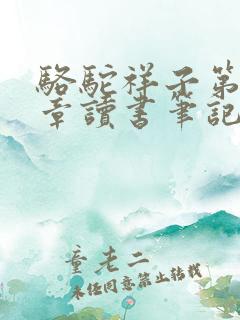 駱駝祥子第
章讀書筆記
童老二
未經同意禁止轉載